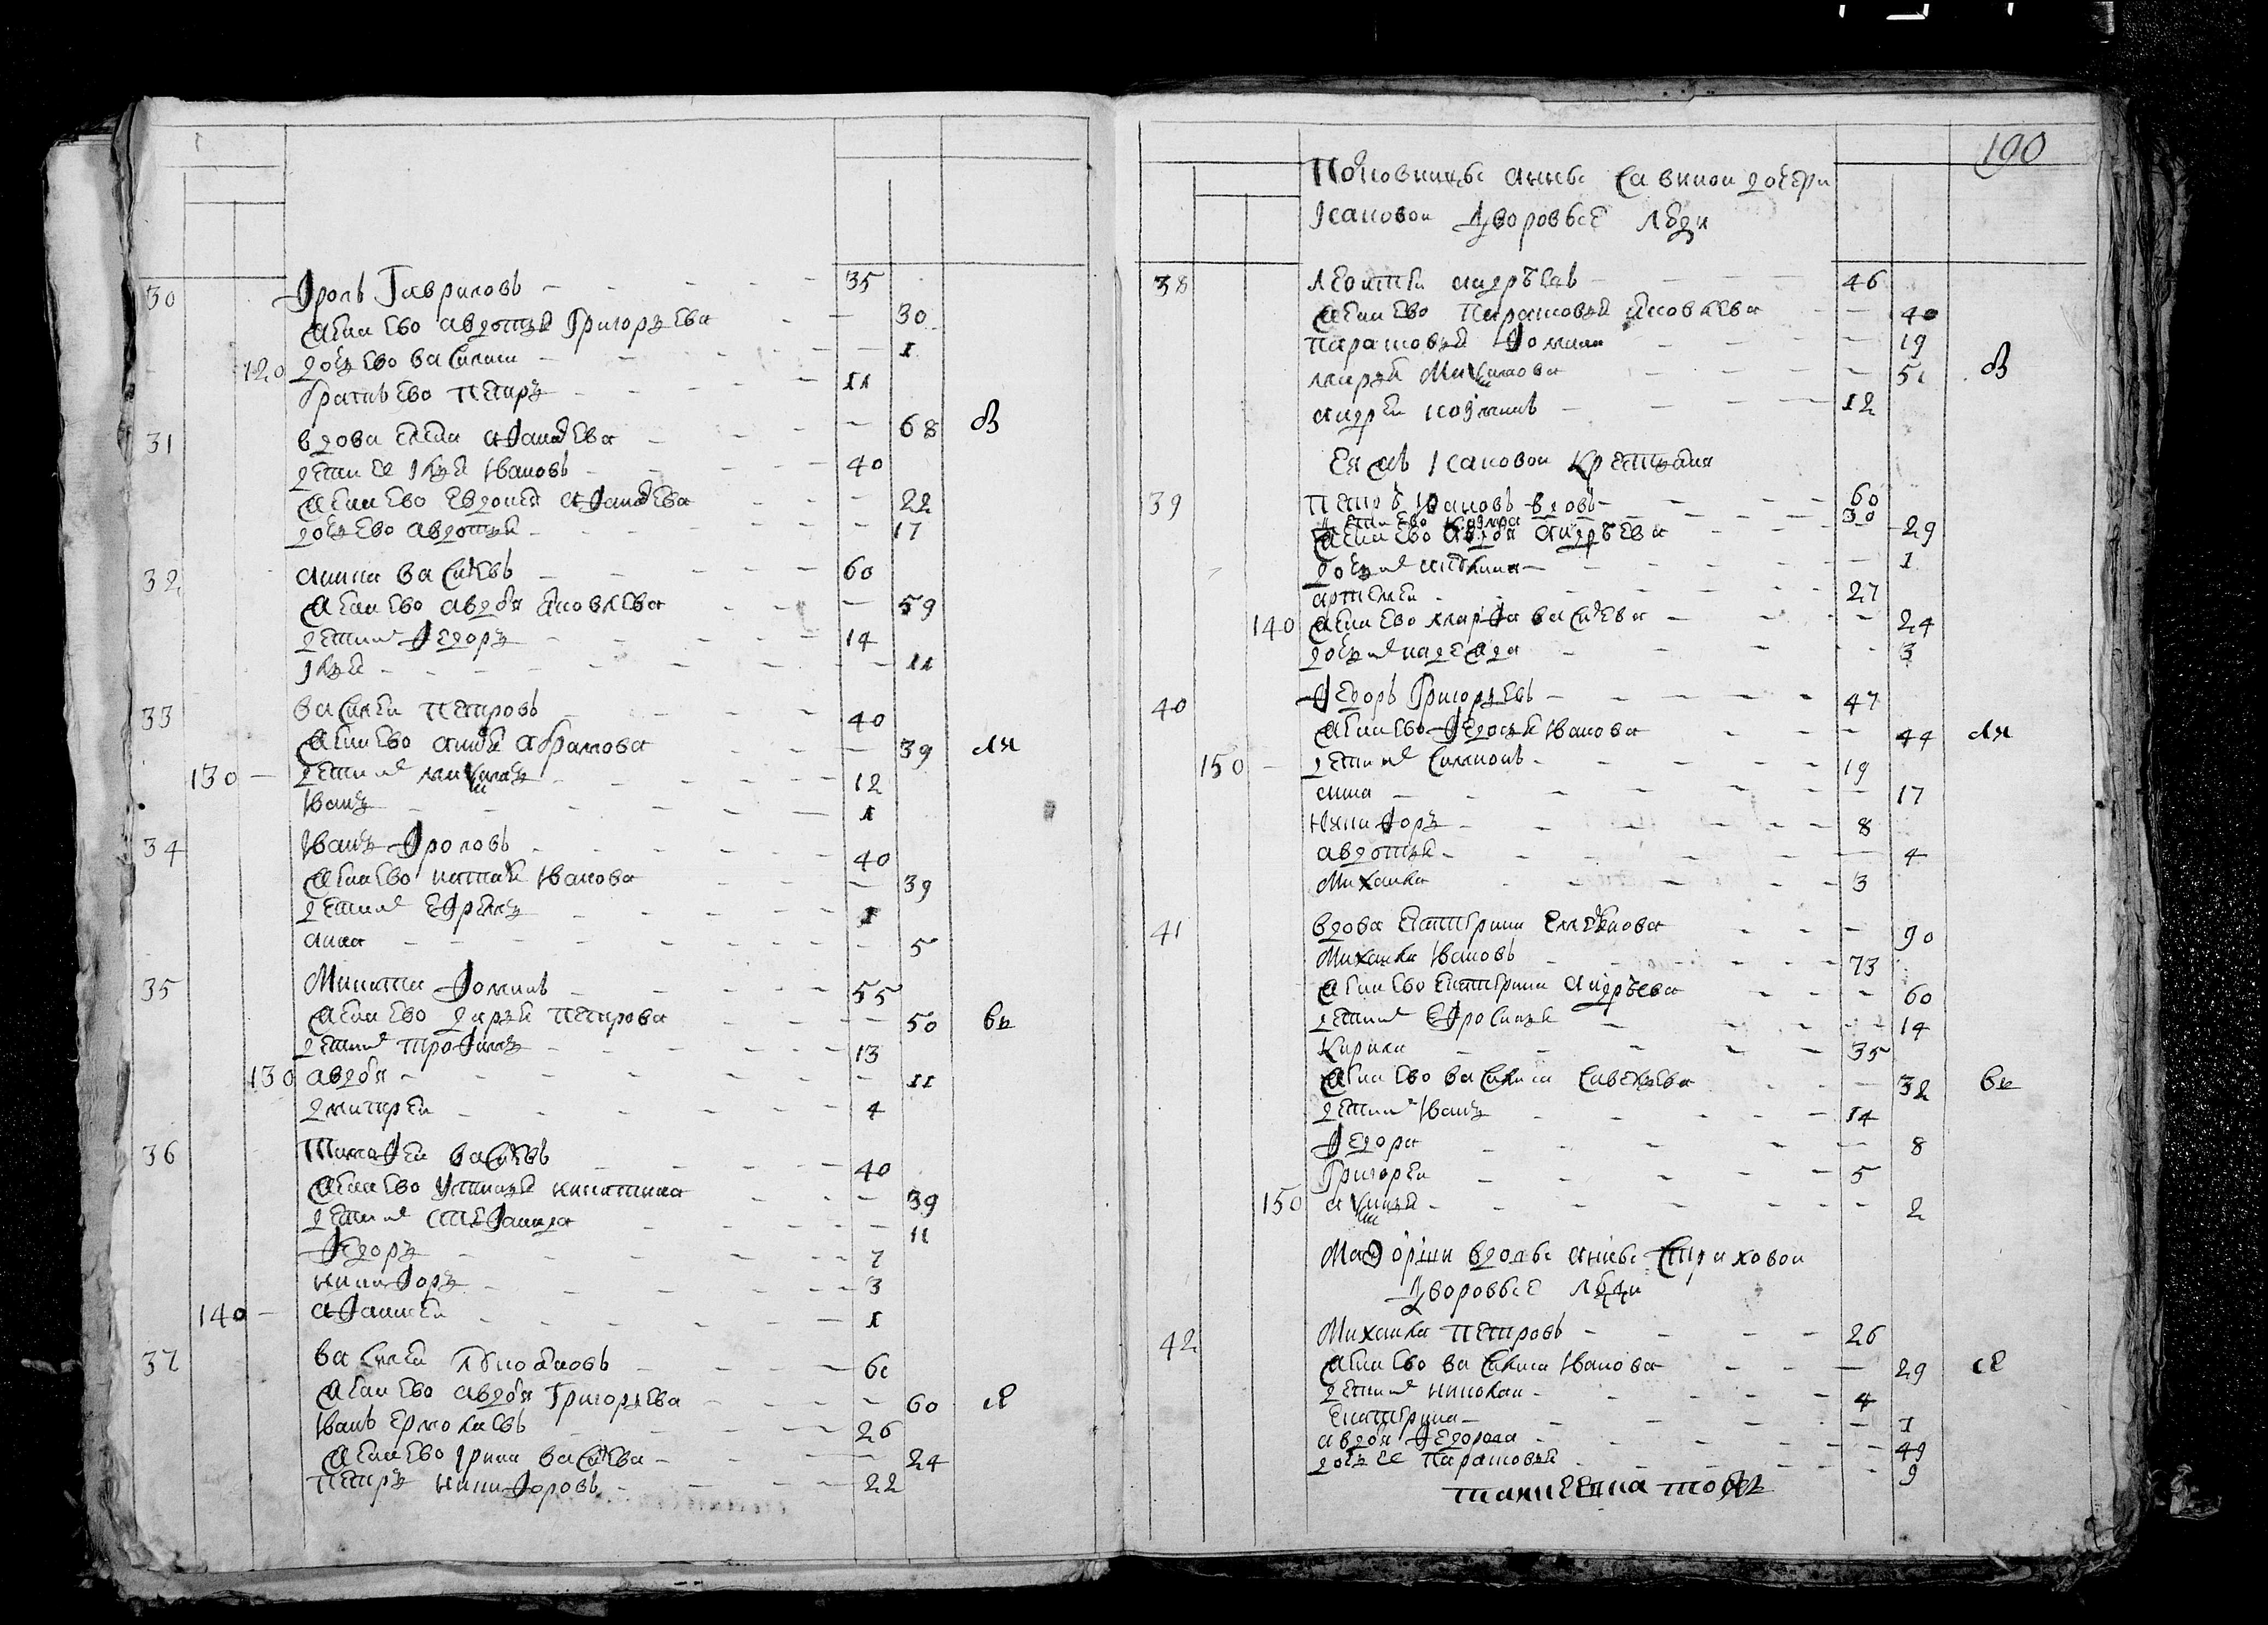 30 Фролъ Гавриловъ 35
жена ево авдотья Григорьева 30
120 дочь ево василиса 1
братъ ево петръ 11
31 вдова елена афанасева 68
дети ее Илья Ивановъ 40
жена ево евдокея афанасева 22
дочь ево авдотья 17
32 анника василевъ 60
жена ево авдотя яковлева 59
дети их федоръ 14
Илья 11
33 василеи петровъ 40
жена ево анна абрамова 39
130 дети их михаила 12
Иванъ 1
34 Иванъ Фроловъ 40
жена ево наталя Иванова 39
дети их ефремъ 1
анна 5
35 Микита Фоминъ 55
жена ево дарья петрова 50
дети их трофимъ 13
130 авдотя 11
дмитреи 4
36 Тимофеи василевъ 40
жена ево устинья никитина 39
дети их степанида 11
Федоръ 7
никифоръ 3
140 афанасеи 1
37 василеи 60
жена ево авдотя Григорьева 60
Иванъ ермолаевъ 26
жена ево Ирина василева 24
петръ никифоровъ 22
190
Полковницы анны савиной дочери
Исаковой Дворовые люди
38 леонтеи андреевъ 46
жена ево парасковья яковлева 40
парасковья Фомина 19
марья Михаилова 51
андреи козминъ 12
Ея жъ Исаковой крестьяня
39 петръ Ивановъ вдовъ 60
дети ево козма 30
жена ево авдотя андреева 29
дочь их 1
артемеи 27
140 жена ево марфа василева 24
дочь их надежда 3
40 Федоръ Григорьевъ 47
жена ево Федосья Иванова 44
150 дети их симионъ 19
анна 17
никифоръ 8
авдотья 4
Михаила 3
41 вдова екатерина емельянова 90
Михаила Ивановъ 73
жена ево екатерина андреева 60
дети их ефросинья 14
Кирила 35
жена ево василиса савельева 32
дети их Иванъ 14
Федора 8
Григореи 5
150 аксинья 2
Маиорши вдовы анны Стриховой
Дворовые люди
42 Михаила петровъ 26
жена ево василиса Иванова 29
дети их николаи 4
екатерина 1
авдотя Федорова 49
дочь ее парасковья 9